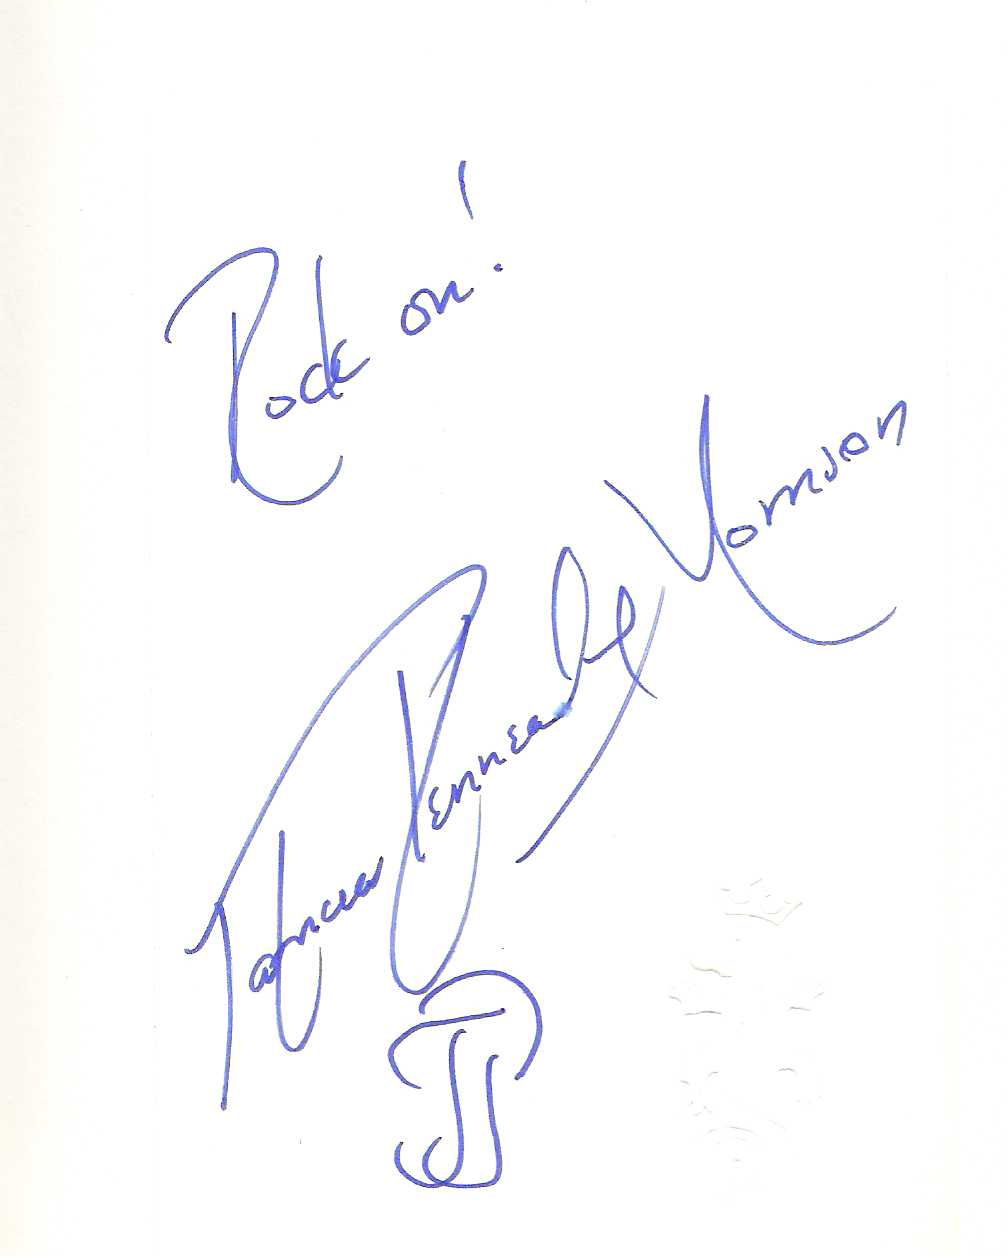 Rock on!
Patricia Kennealy Morrison